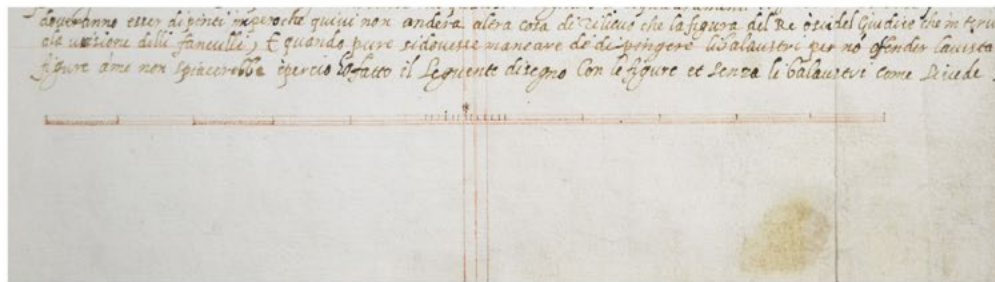 doveranno esser dipinti imperoche quivi non anderà altra cosa di rilievo che la figura del Re o sia del Giudice che in
ola uccisione delli fanculli, E quando pure si dovesse mancare de dipongere li balaustri per nó ofender la vista
figure a me non spiacerebbe e percio hò fatto il seguente disegno Con le figure et senza le balaustri come si vede